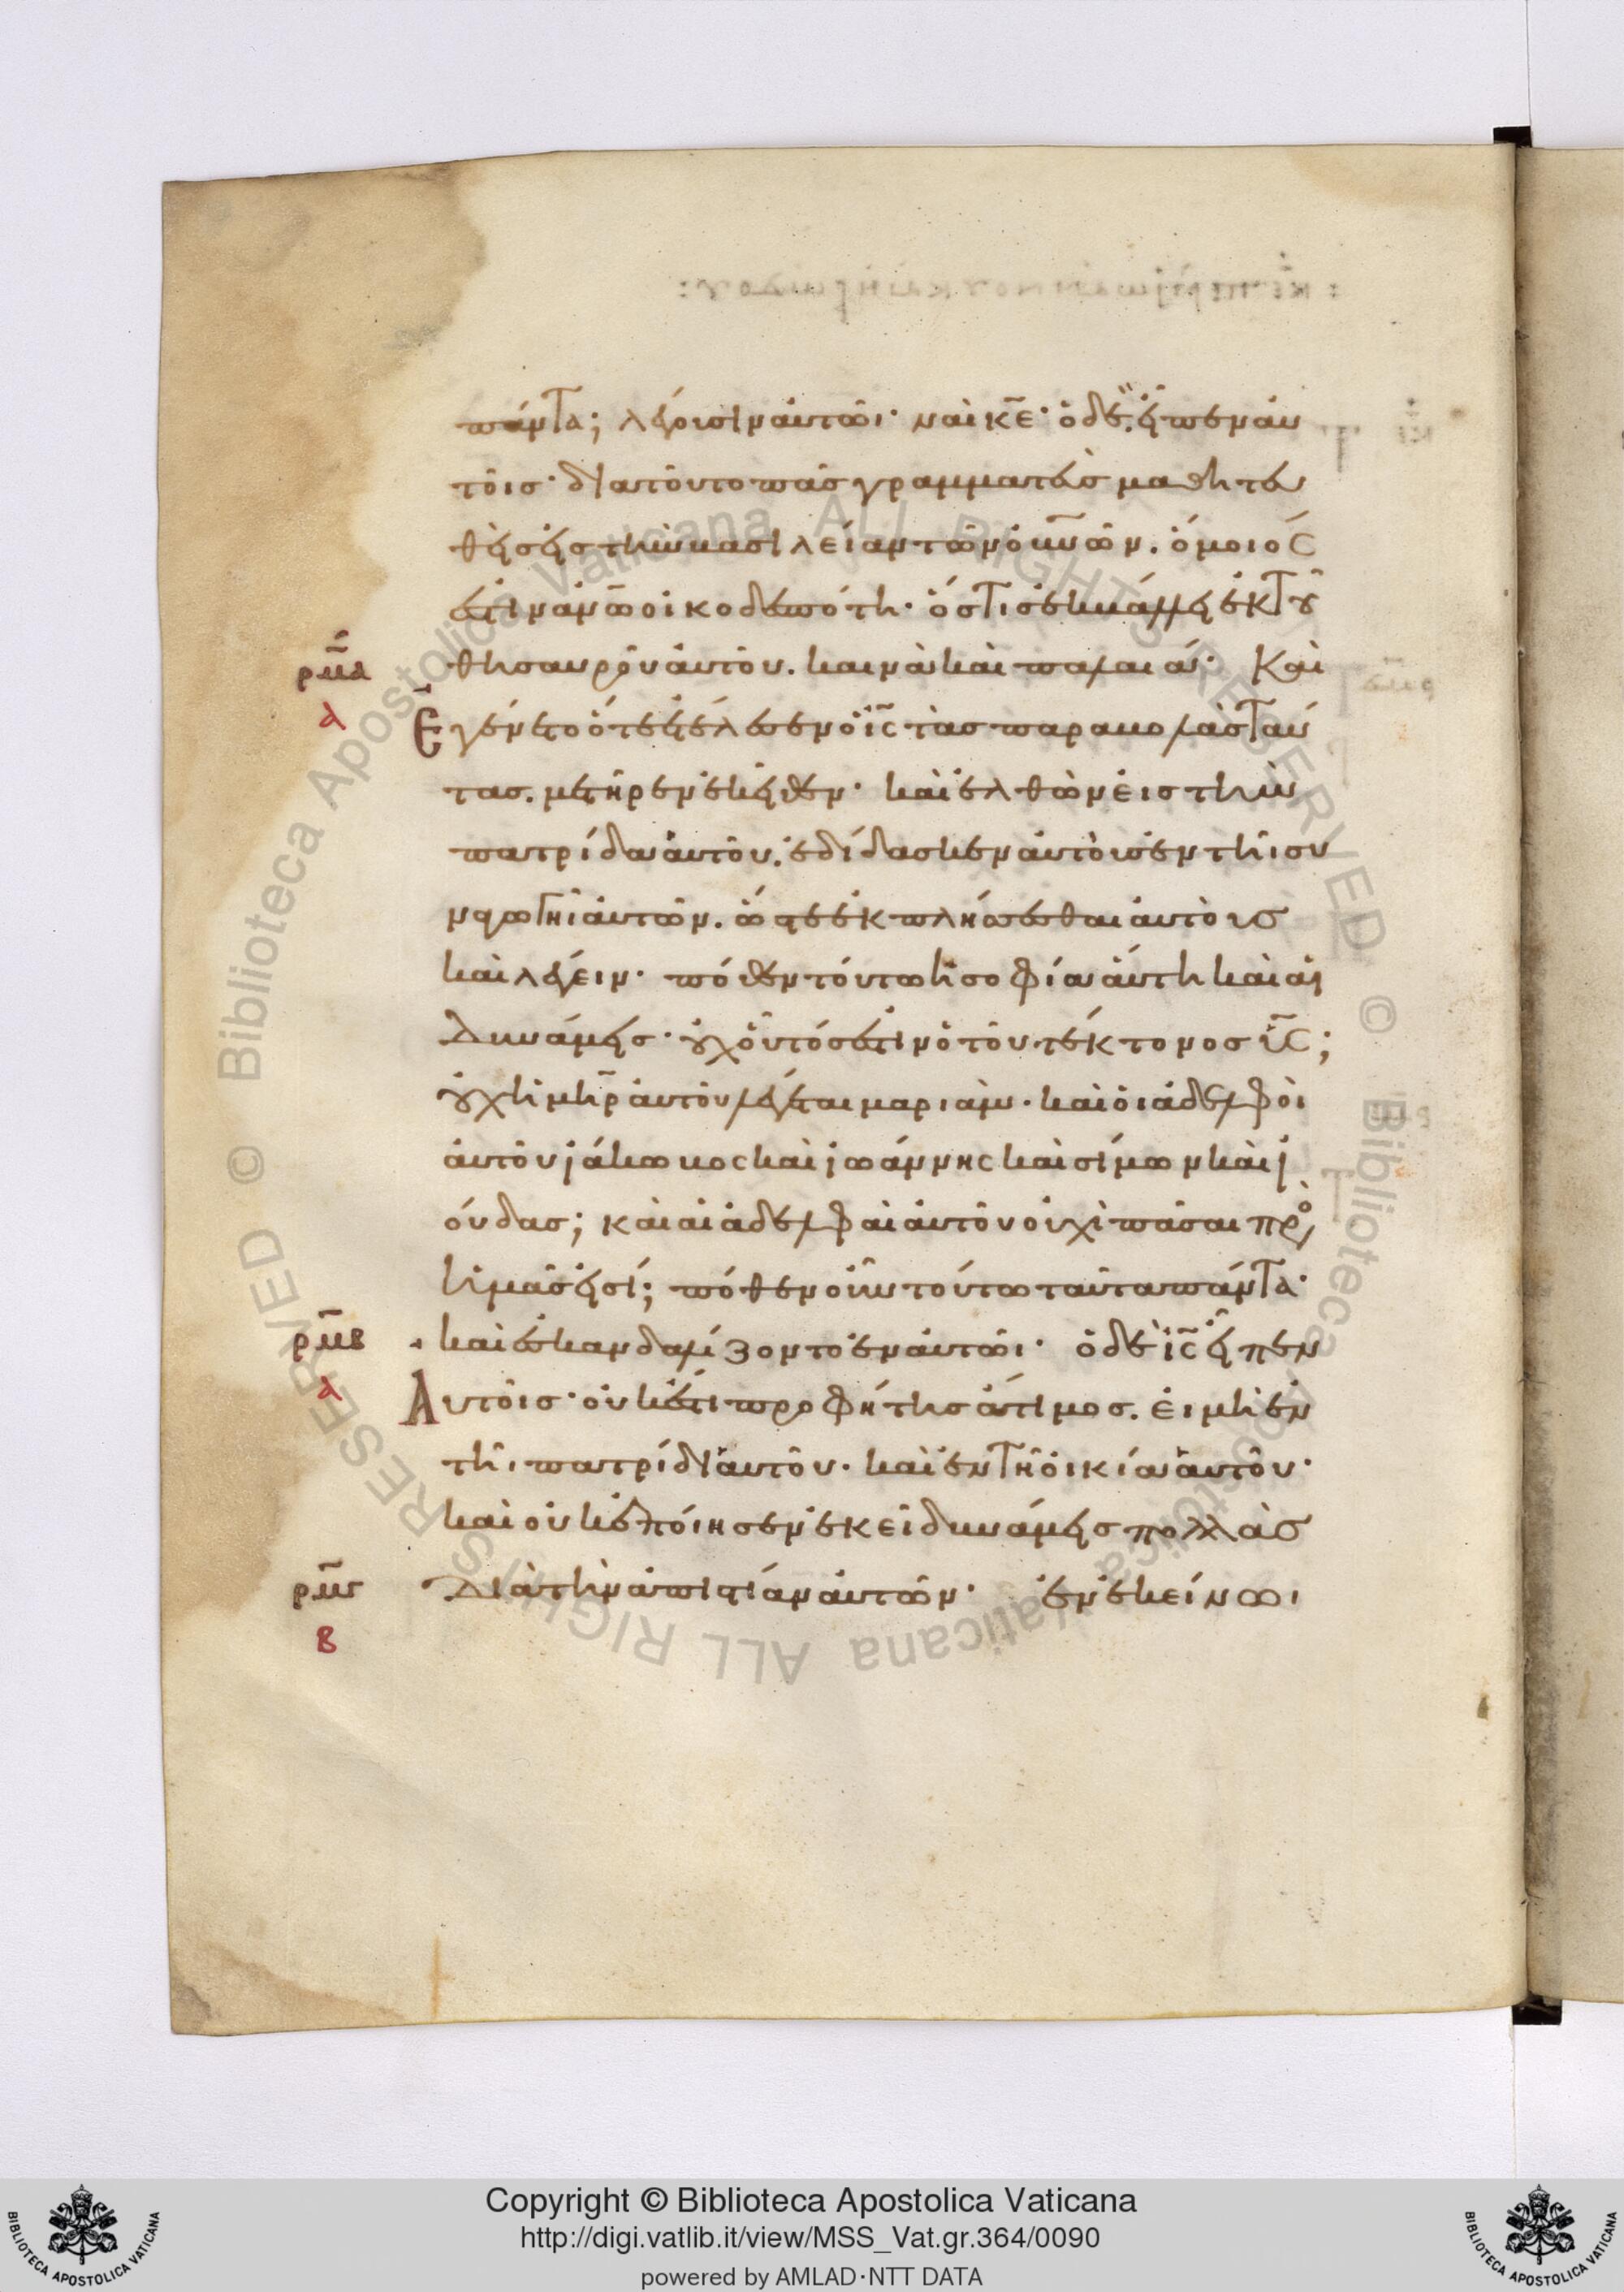 πάντα; λέγουσιν αὐτῶι· ναὶ κ̅ε̅· ὁ δὲ εἶπεν αὐ
τοῖς· διατοῦτο πᾶς γραμματεὺς μαθητευ
θεὶς εἰς τὴν βασιλείαν τῶν οὐ̅ν̅ῶν. ὅμοιός
ἐστιν ἀν̅ω̅ οἰκοδεσπότη· ὅστις ἐκβάλλει ἐκ τοῦ
ρμα θησαυροῦ αὐτοῦ. καινὰ καὶ παλαιά· Καὶ
α Ἐγένετο ὅτε ἐτέλεσεν ὁ ι̅ς̅ τὰς παραβολὰς ταύ
τας. μετῆρεν ἐκεῖθεν· καὶ ἐλθὼν εἰς τὴν
πατρίδα αὐτοῦ. ἐδίδασκεν αὐτοὺς ἐν τῆι συ
ναγωγῆι αὐτῶν. ὥστε ἐκπλήσσεσθαι αὐτοὺς
καὶ λέγειν· πόθεν τούτω ἡ σοφία αὕτη καὶ αἱ
Δυνάμεις· οὐχ οὗτός ἐστιν ὁ τοῦ τέκτονος υ̅ς̅;
οὐχ ἡ μ̅η̅ρ̅ αὐτοῦ λέγεται μαριὰμ· καὶ οἱ ἀδελφοὶ
αὐτοῦ ἰάκωβος καὶ ἰωάννης καὶ σίμων καὶ ἰ
ούδας; καὶ αἱ ἀδελφαὶ αὐτοῦ οὐχὶ πᾶσαι πρὸς
ἡμᾶς εἰσί; πόθεν οὖν τούτω ταῦτα πάντα·
ρμβ καὶ ἐσκανδαλίζοντο ἐν αὐτῶι· ὁ δὲ ι̅ς̅ εἶπεν
α Αὐτοῖς· οὐκ ἔστι προφήτης ἄτιμος. εἰ μὴ ἐν
τῆι πατρίδι αὐτοῦ· καὶ ἐν τῆ οἰκία αὐτοῦ·
καὶ οὐκ ἐποίησεν ἐκεῖ δυνάμεις πολλὰς
ρμγ Διὰ τὴν ἀπιστίαν αὐτῶν· ἐν ἐκείνωι
β
Copyright © Biblioteca Apostolica Vaticana
http://digi.vatlib.it/view/MSS_Vat.gr.364/0090
powered by AMLAD·NTT DATA
BIBLIOTECA APOSTOLICA VATICANA
BIBLIOTECA APOSTOLICA VATICANA
© Biblioteca Apostolica Vaticana ALL RIGHTS RESERVED
© Biblioteca Apostolica Vaticana ALL RIGHTS RESERVED